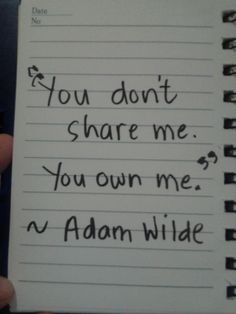 Date
No
"You don't
share me.
You own me."
~ Adam Wilde